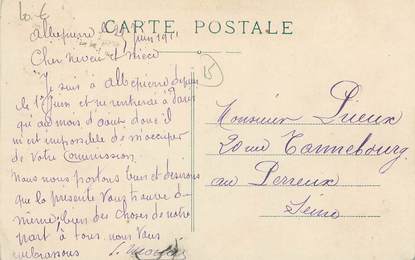 CARTE POSTALE
Albepierre juin 191
Cher neveu et niece
Je suis à Albepierre depuis
le 1er juin et ne rentrerai à Paris
qu'au mois d'aout donc il
m'est impossible de m'occuper
de votre Commission
Nous nous portons bien et désirons
que la présente vous trouve de
même, bien des choses de notre
part à tous. nous vous
embrassons
Monsieur Prieux
20 rue
au Perreux
Seine